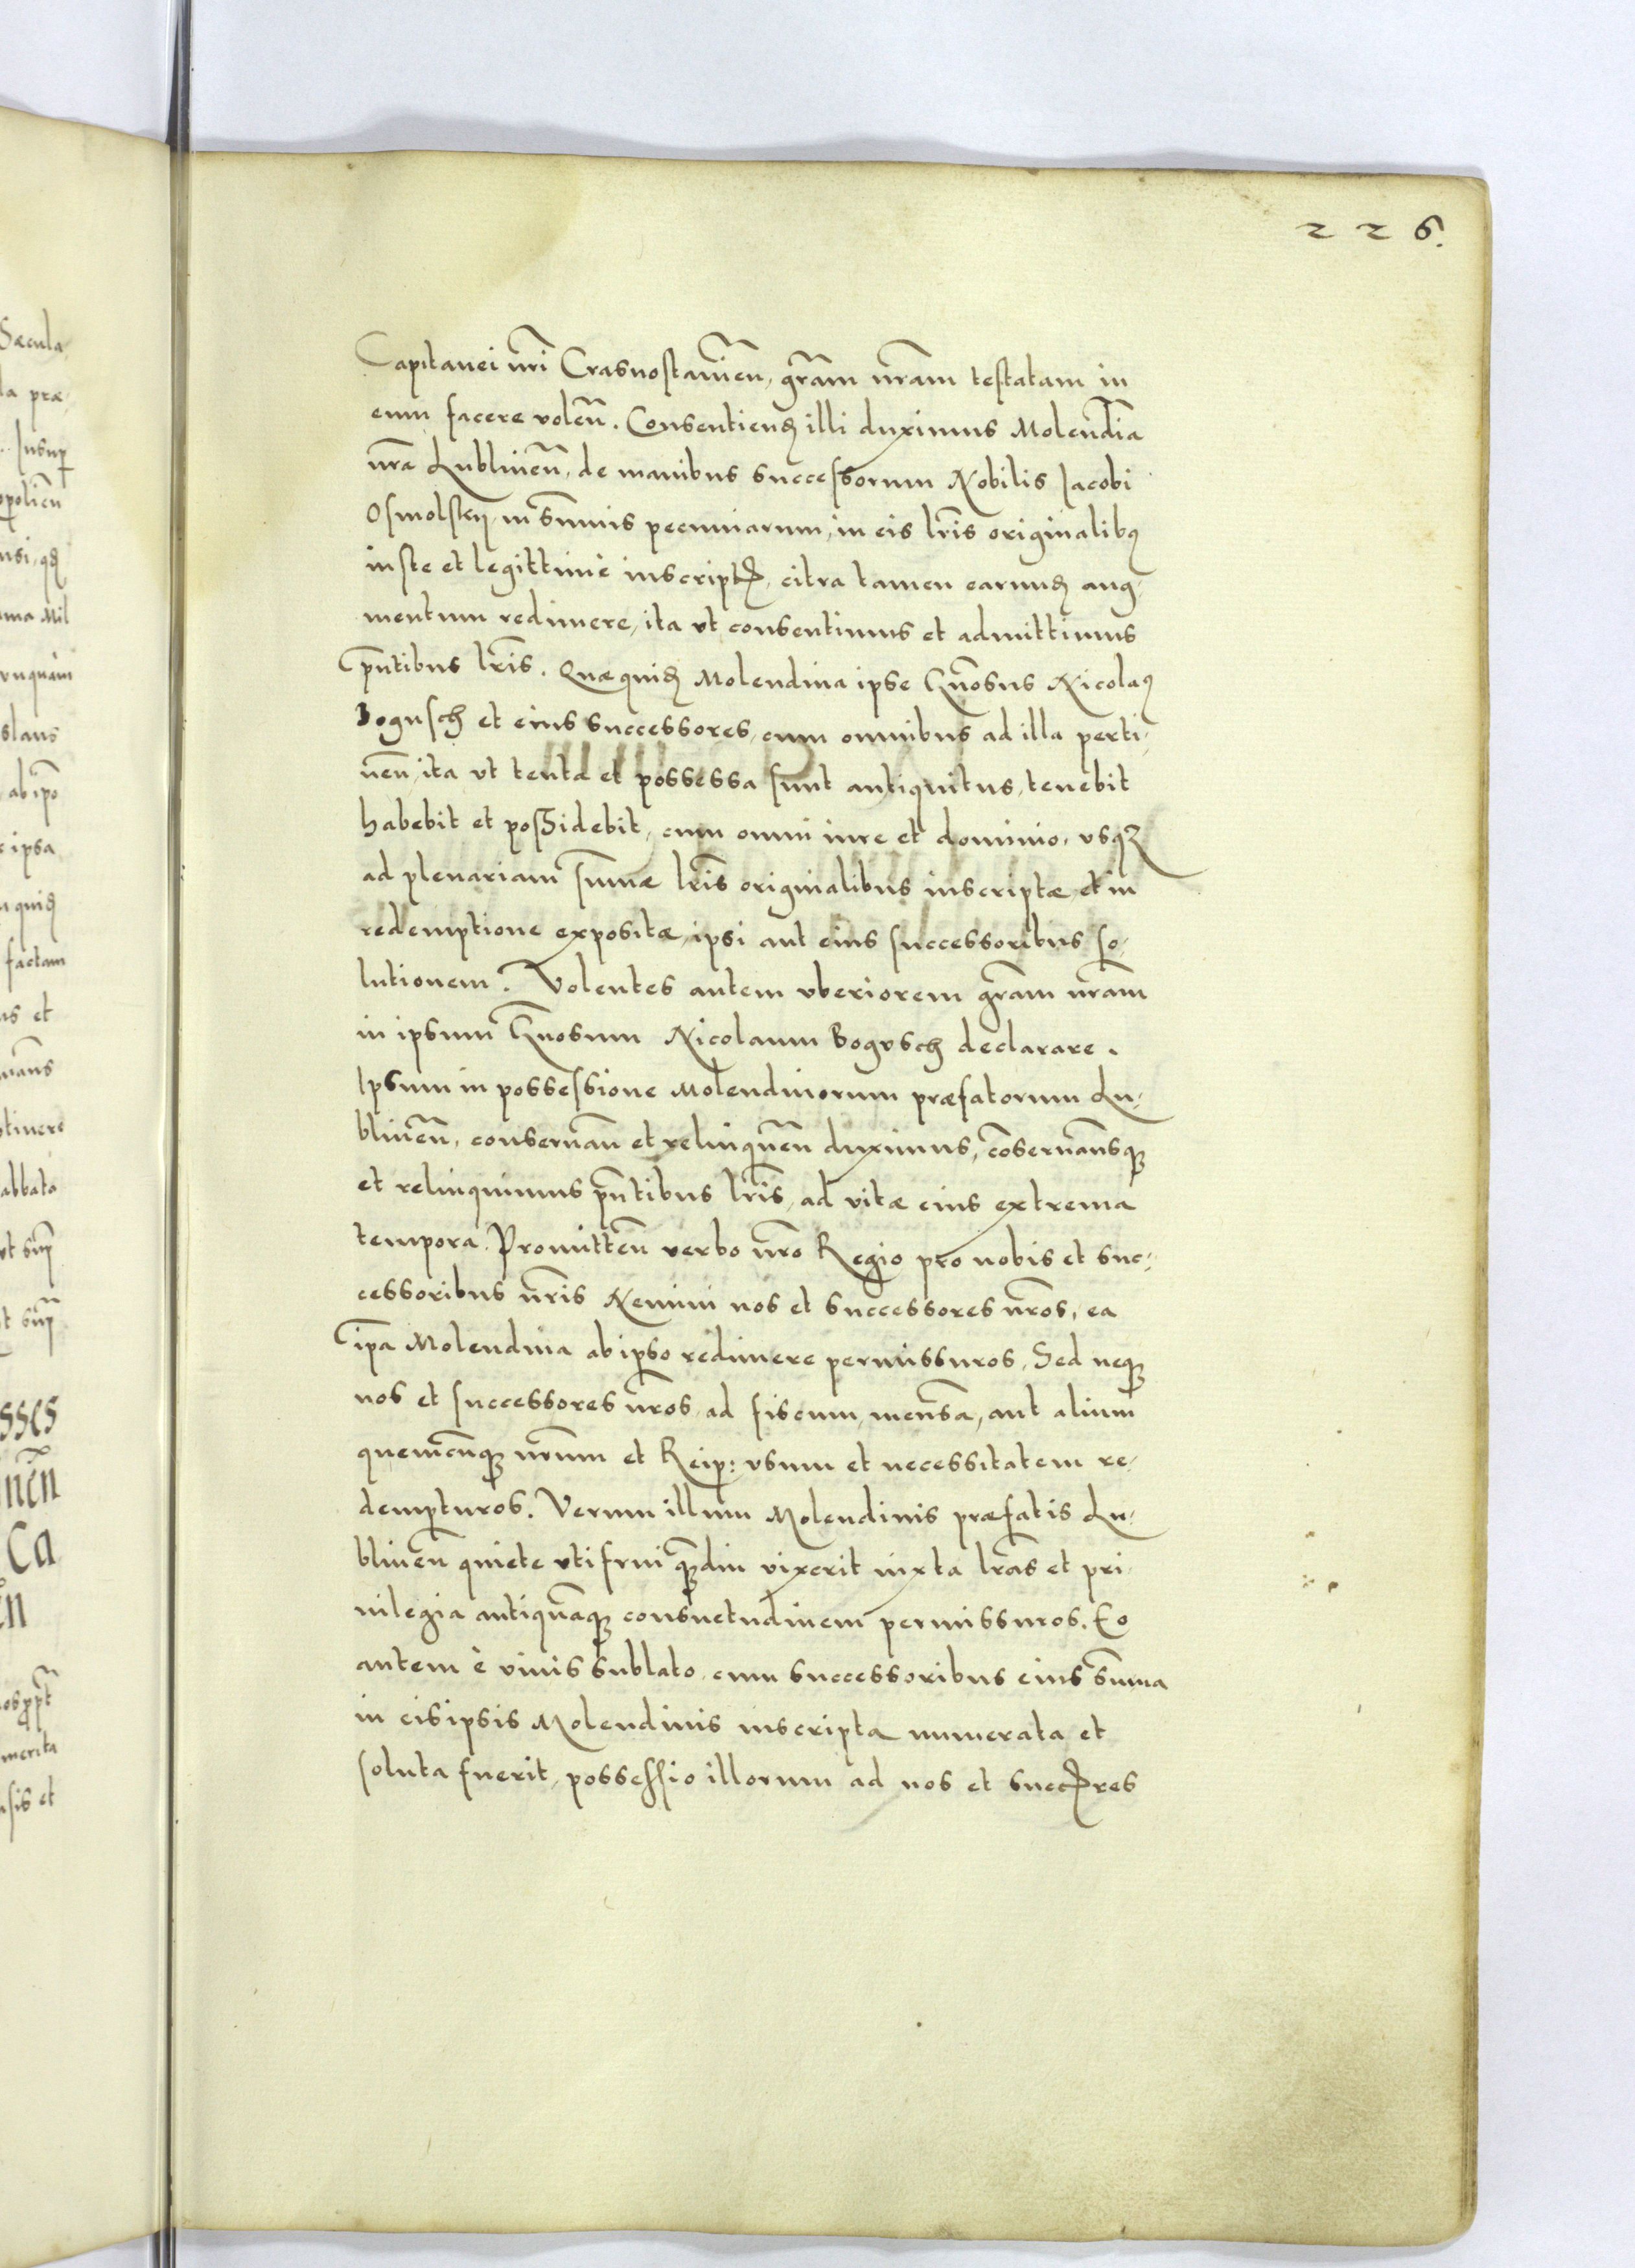 226.
Capitanei nr̃i Crasnostauien̄, gr̃am nr̃am testatam in
eum facere volen̄. Consentiend̨ illi duximus Molendīa
nr̃a Lublinen̄, de manibus successorum Nobilis Iacobi
Osmolskij, in sūmis pecuniarum, in eis lr̃is originalibꝰ
iuste et legittimè inscript̨, citra tamen earund̨ aug-
mentum redimere, ita vt consentimus et admittimus
pñtibus lr̃is. Quæquid̨ Molendina ipse Gñosus Nicolaꝰ
Bogusch et eius successores, cum omnibus ad illa perti-
nen̄, ita vt tenta et possessa sunt antiquitus, tenebit
habebit et possidebit, cum omni iure et dominio, vsqꝫ
ad plenariam sūmæ lr̃is originalibus inscriptæ, et in
redemptione expositæ, ipsi aut eius successoribus so-
lutionem. Volentes autem vberiorem gr̃am nr̃am
in ipsum Gñosum Nicolaum Bogvsch declarare.
Ipsum in possessione Molendinorum præfatorum Lu-
blinen̄, conseruan̄ et relinquen̄ duximus, cōseruamusqꝫ
et relinquimus pñtibus lr̃is, ad vitæ eius extrema
tempora. Promitten̄ verbo nr̃o Regio pro nobis et suc-
cessoribus nr̃is Nemini nos et successores nr̃os, ea
ip̃a Molendina ab ipso redimere permissuros, Sed neqꝫ
nos et successores nr̃os, ad fiscum, mensā, aut alium
quemcūqꝫ nr̃um et Reip: vsum et necessitatem re-
dempturos. Verum illum Molendinis præfatis Lu-
blinen̄ quiete vti frui qꝫ̄diu vixerit iuxta lr̃as et pri-
uilegia antiquāqꝫ consuetudinem permissuros. Eo
autem è viuis sublato, cum successoribus eius sūma
in eisipsis Molendinis inscripta numerata et
soluta fuerit, possessio illorum ad nos et succ̨res